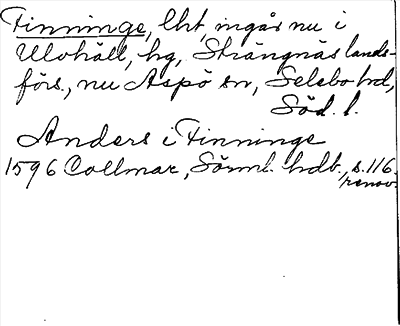 Finninge, lht, ingår nu i
Ulvhäll, hg, Strängnäs lands-
förs., nu Aspö sn, Selebo hd,
Söd. l.
Anders i Finninge
1596 Collmar, Sörml. hdb., s. 116.
renov.